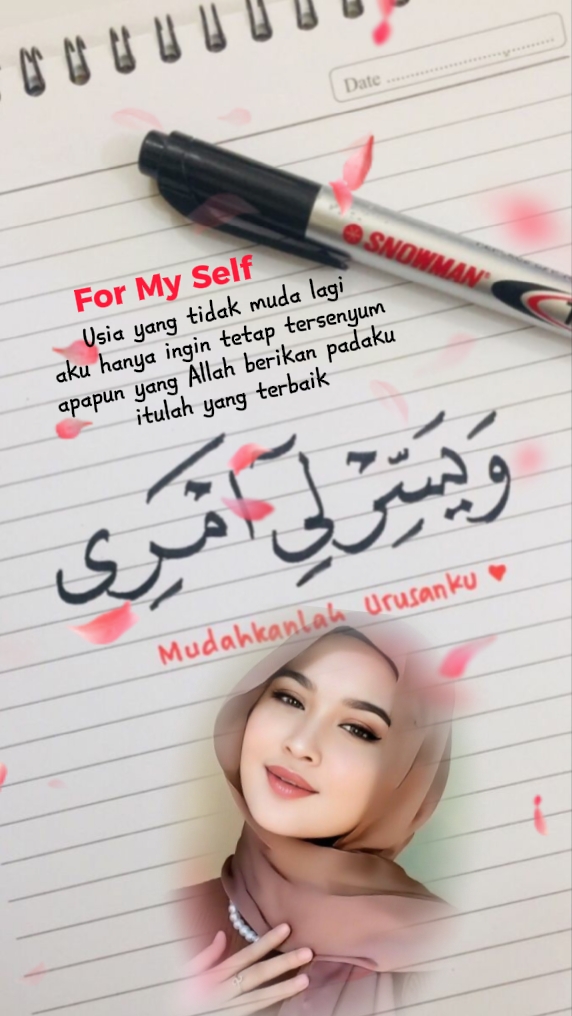 Date
SNOWMAN
For My Self
Usia yang tidak muda lagi
aku hanya ingin tetap tersenyum
apapun yang Allah berikan padaku
itulah yang terbaik
وَيَسِّرْ لِيْٓ اَمْرِى
Mudahkanlah Urusanku ♥